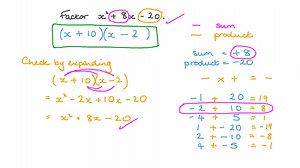 Factor x² + 8x - 20.
(x + 10)(x - 2)
Check by expanding
(x + 10)(x - 2)
= x² - 2x + 10x - 20
= x² + 8x - 20
- sum
- product
sum = +8
product = -20
- x + = -
-1 + 20 = 19
-2 + 10 = 8
-4 + 5 = 1
1 + -20 = -19
2 + -10 = -8
4 + -5 = -1